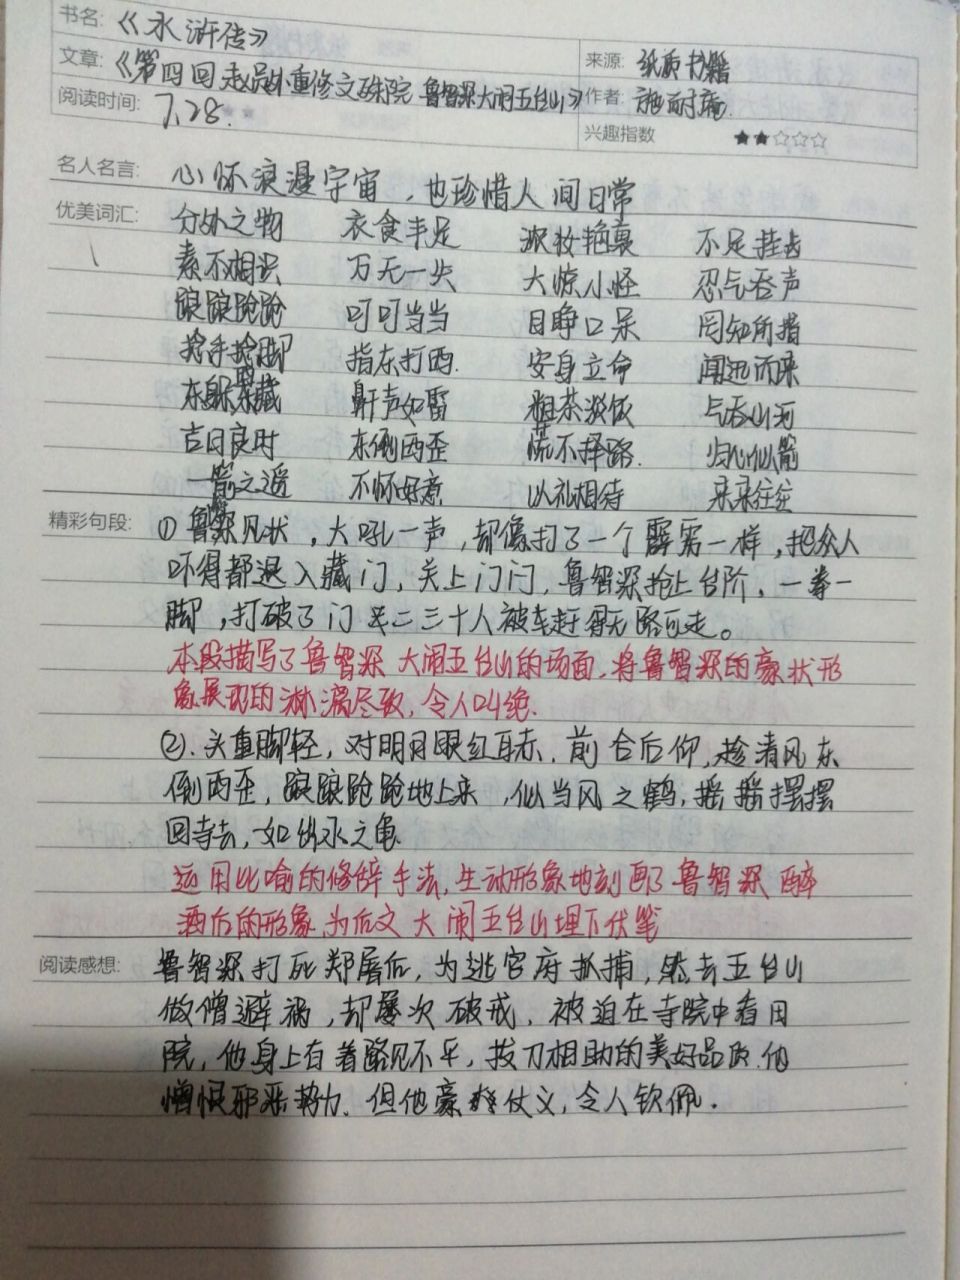 书名: 《水浒传》
文章: 《第四回 赵员外重修文殊院 鲁智深大闹五台山》
来源: 纸质书籍
阅读时间: 7.28.
作者: 施耐庵.
兴趣指数 ★★☆☆☆
名人名言: 心怀浪漫宇宙，也珍惜人间日常
优美词汇: 分外之物 衣食丰足 浓妆艳裹 不足挂齿
素不相识 万无一失 大惊小怪 忍气吞声
踉踉跄跄 叮叮当当 目睁口呆 罔知所措
抢手抢脚 指东打西. 安身立命 闻迅而来
东躲西藏 鼾声如雷 粗茶淡饭 气吞山河
吉日良时 东倒西歪 慌不择路. 归心似箭
一箭之遥 不怀好意 以礼相待 来来往往
精彩句段: ①鲁智深见状，大吼一声，却像打了一个霹雳一样，把众人
吓得都退入藏门，关上门闩，鲁智深抢上台阶，一拳一
脚，打破了门 二三十人被 赶得无路可走。
本段描写了鲁智深大闹五台山的场面，将鲁智深的豪状形
象展现的淋漓尽致，令人叫绝.
②.头重脚轻，对明月眼红耳赤，前合后仰，趁清风东
倒西歪，踉踉跄跄地上来，似当风之鹤，摇摇摆摆
回寺去，如出水之龟
运用比喻的修辞手法，生动形象地刻画了鲁智深醉
酒后的形象，为后文大闹五台山埋下伏笔
阅读感想: 鲁智深打死郑屠后，为逃官府抓捕，去五台山
做僧避祸，却屡次破戒，被迫在寺院中看田
院，他身上有着路见不平，拔刀相助的美好品质.他
憎恨邪恶势力，但他豪 仗义，令人钦佩.